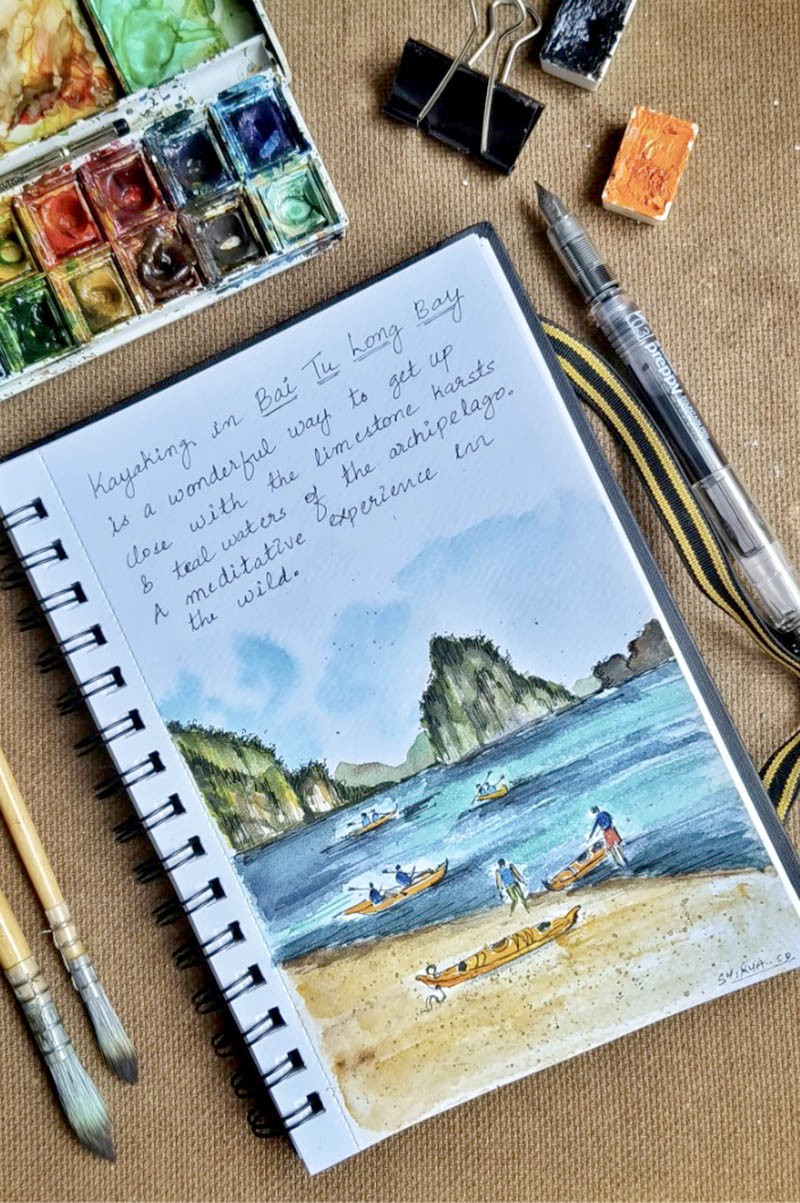 Kayaking in Bai Tu Long Bay
is a wonderful way to get up
close with the limestone karsts
& teal waters of the archipelago.
A meditative experience inn
the wild.
SHIKHA.SR.
preppy